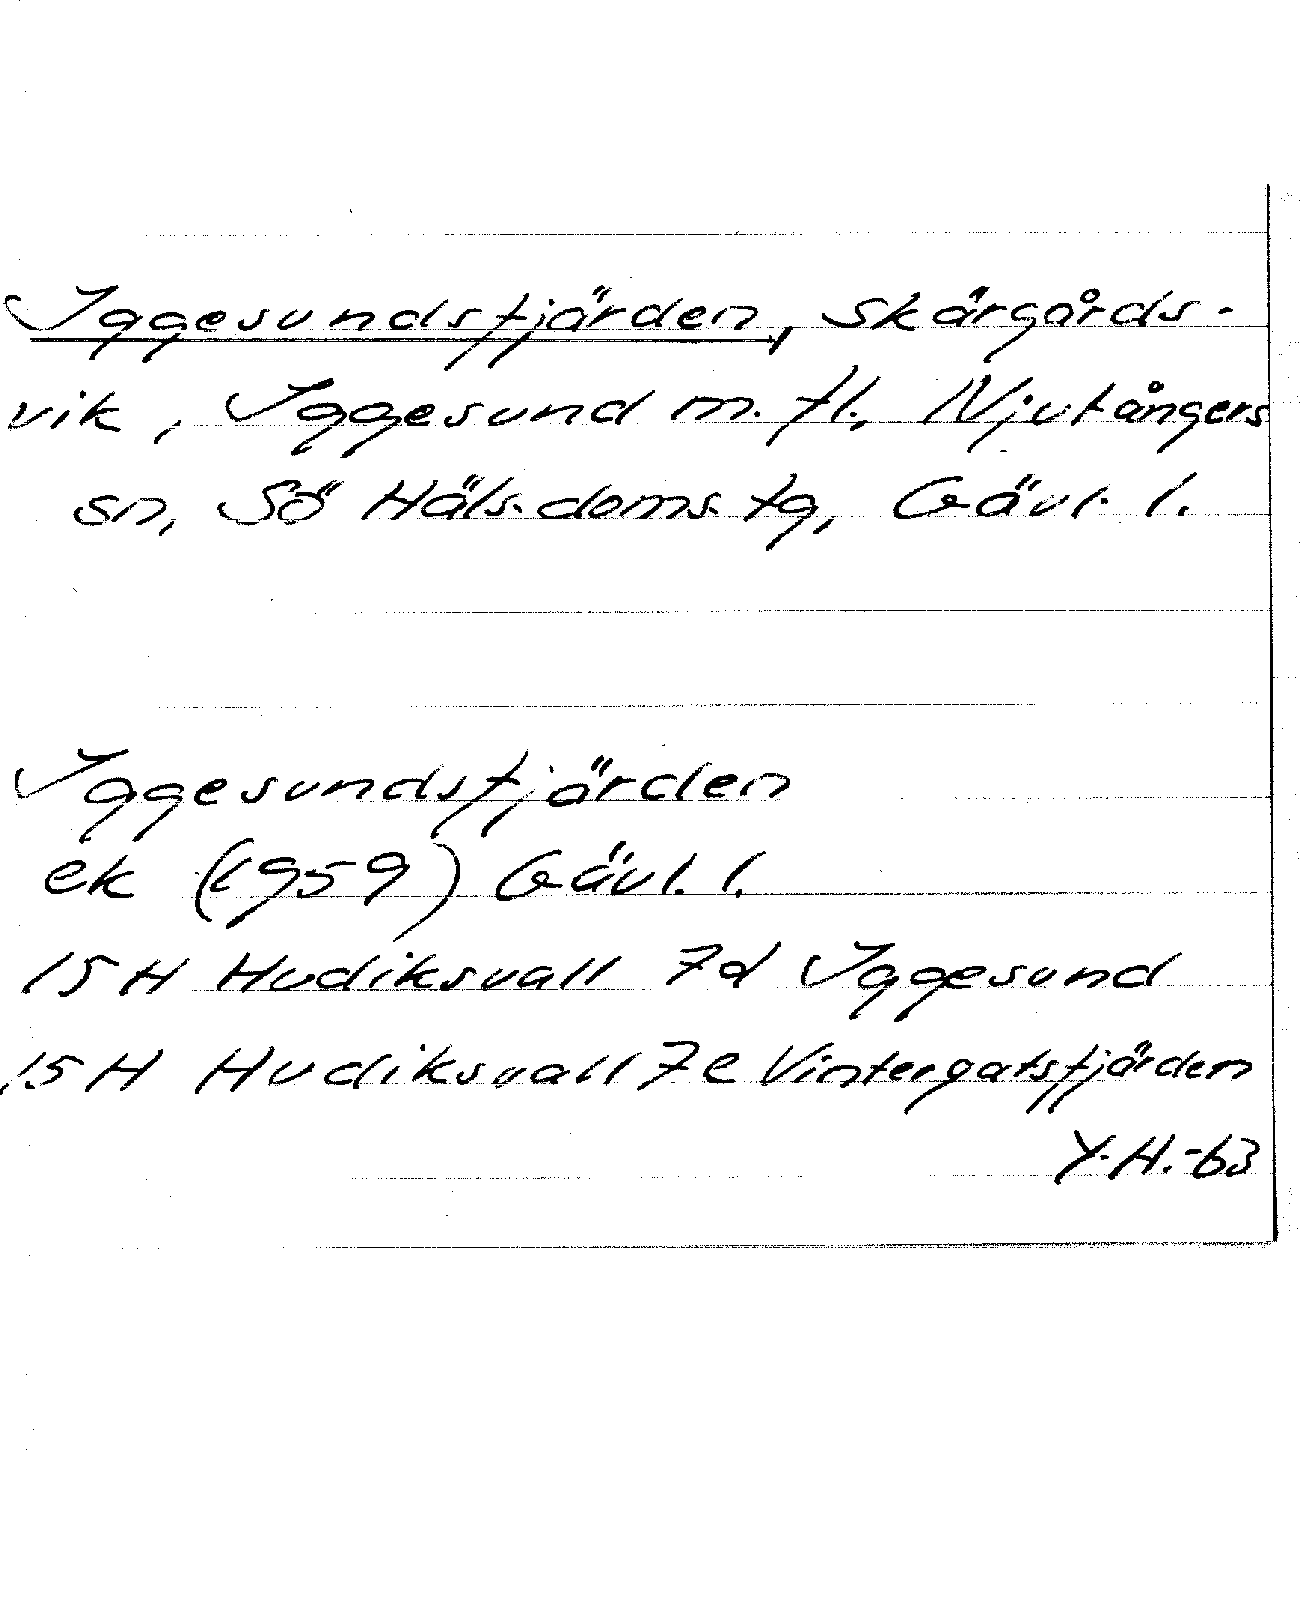 Iggesundsfjärden, skärgårds-
vik, Iggesund m. fl. Njutångers
sn, Sö Häls. doms. tg, Gävl. l.
Iggesundsfjärden
ek (1959) Gävl. l.
15 H Hudiksvall 7d Iggesund
15 H Hudiksvall 7e Vintergatsfjärden
Y.H.-63